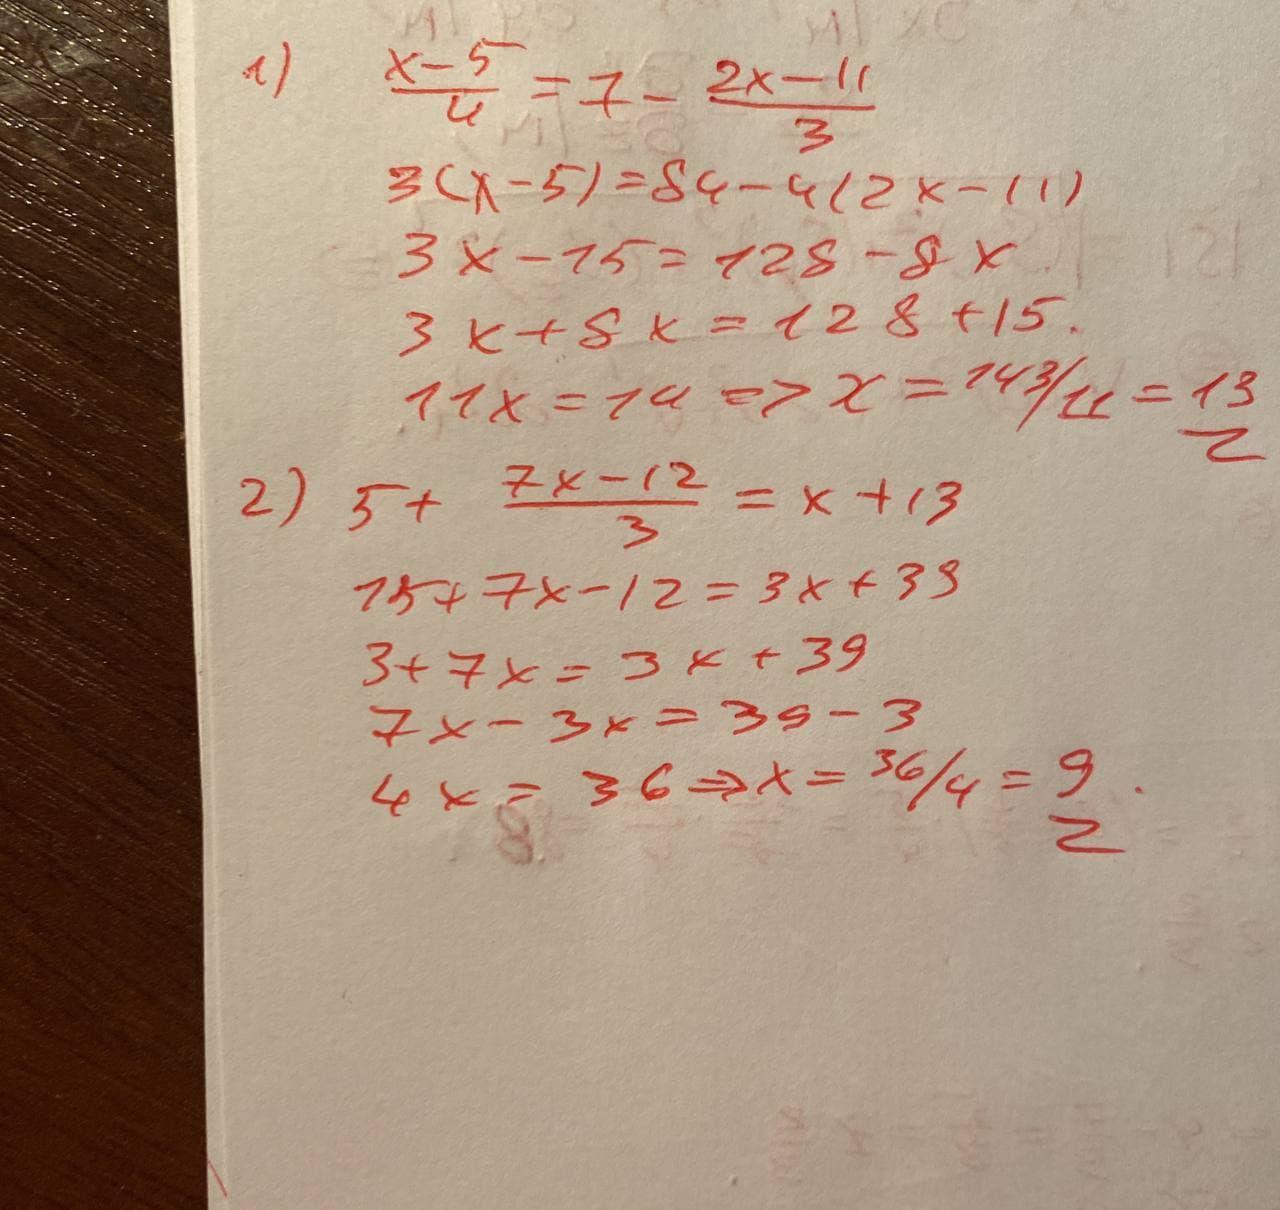 1) (x-5)/4 = 7 - (2x-11)/3
3(x-5)=84-4(2x-11)
3x-15=128-8x
3x+8x=128+15.
11x=14 => x=143/11=13
2) 5+ (7x-12)/3 = x+13
15+7x-12=3x+39
3+7x=3x+39
7x-3x=39-3
4x=36=>x=36/4=9.